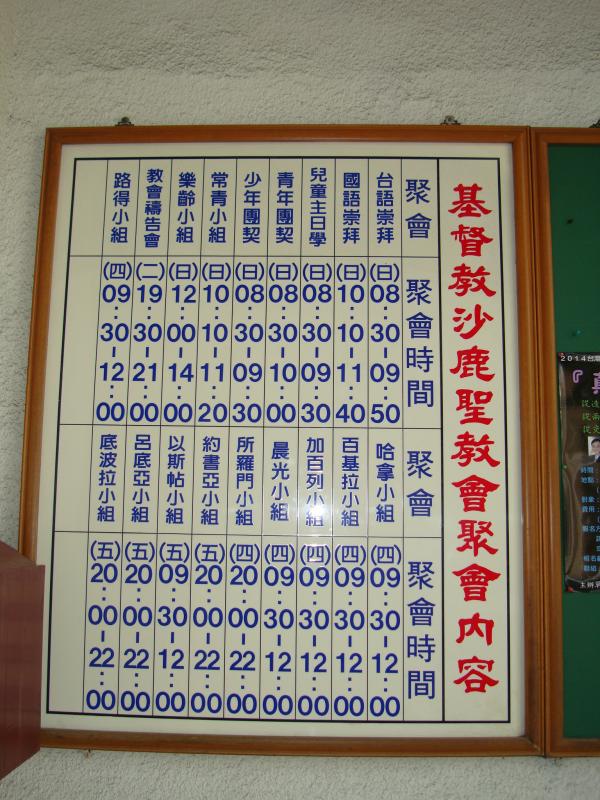 基督教沙鹿聖教會聚會內容
聚會 聚會時間 聚會 聚會時間
台語崇拜 (日)08:30-09:50 哈拿小組 (四)09:30-12:00
國語崇拜 (日)10:10-11:40 百基拉小組 (四)09:30-12:00
兒童主日學 (日)08:30-09:30 加百列小組 (四)09:30-12:00
青年團契 (日)08:30-10:00 晨光小組 (四)09:30-12:00
少年團契 (日)08:30-09:30 所羅門小組 (四)20:00-22:00
常青小組 (日)10:10-11:20 約書亞小組 (五)20:00-22:00
樂齡小組 (日)12:00-14:00 以斯帖小組 (五)09:30-12:00
教會禱告會 (二)19:30-21:00 呂底亞小組 (五)20:00-22:00
路得小組 (四)09:30-12:00 底波拉小組 (五)20:00-22:00
2014台灣
時間
地點:
對象:
費用: